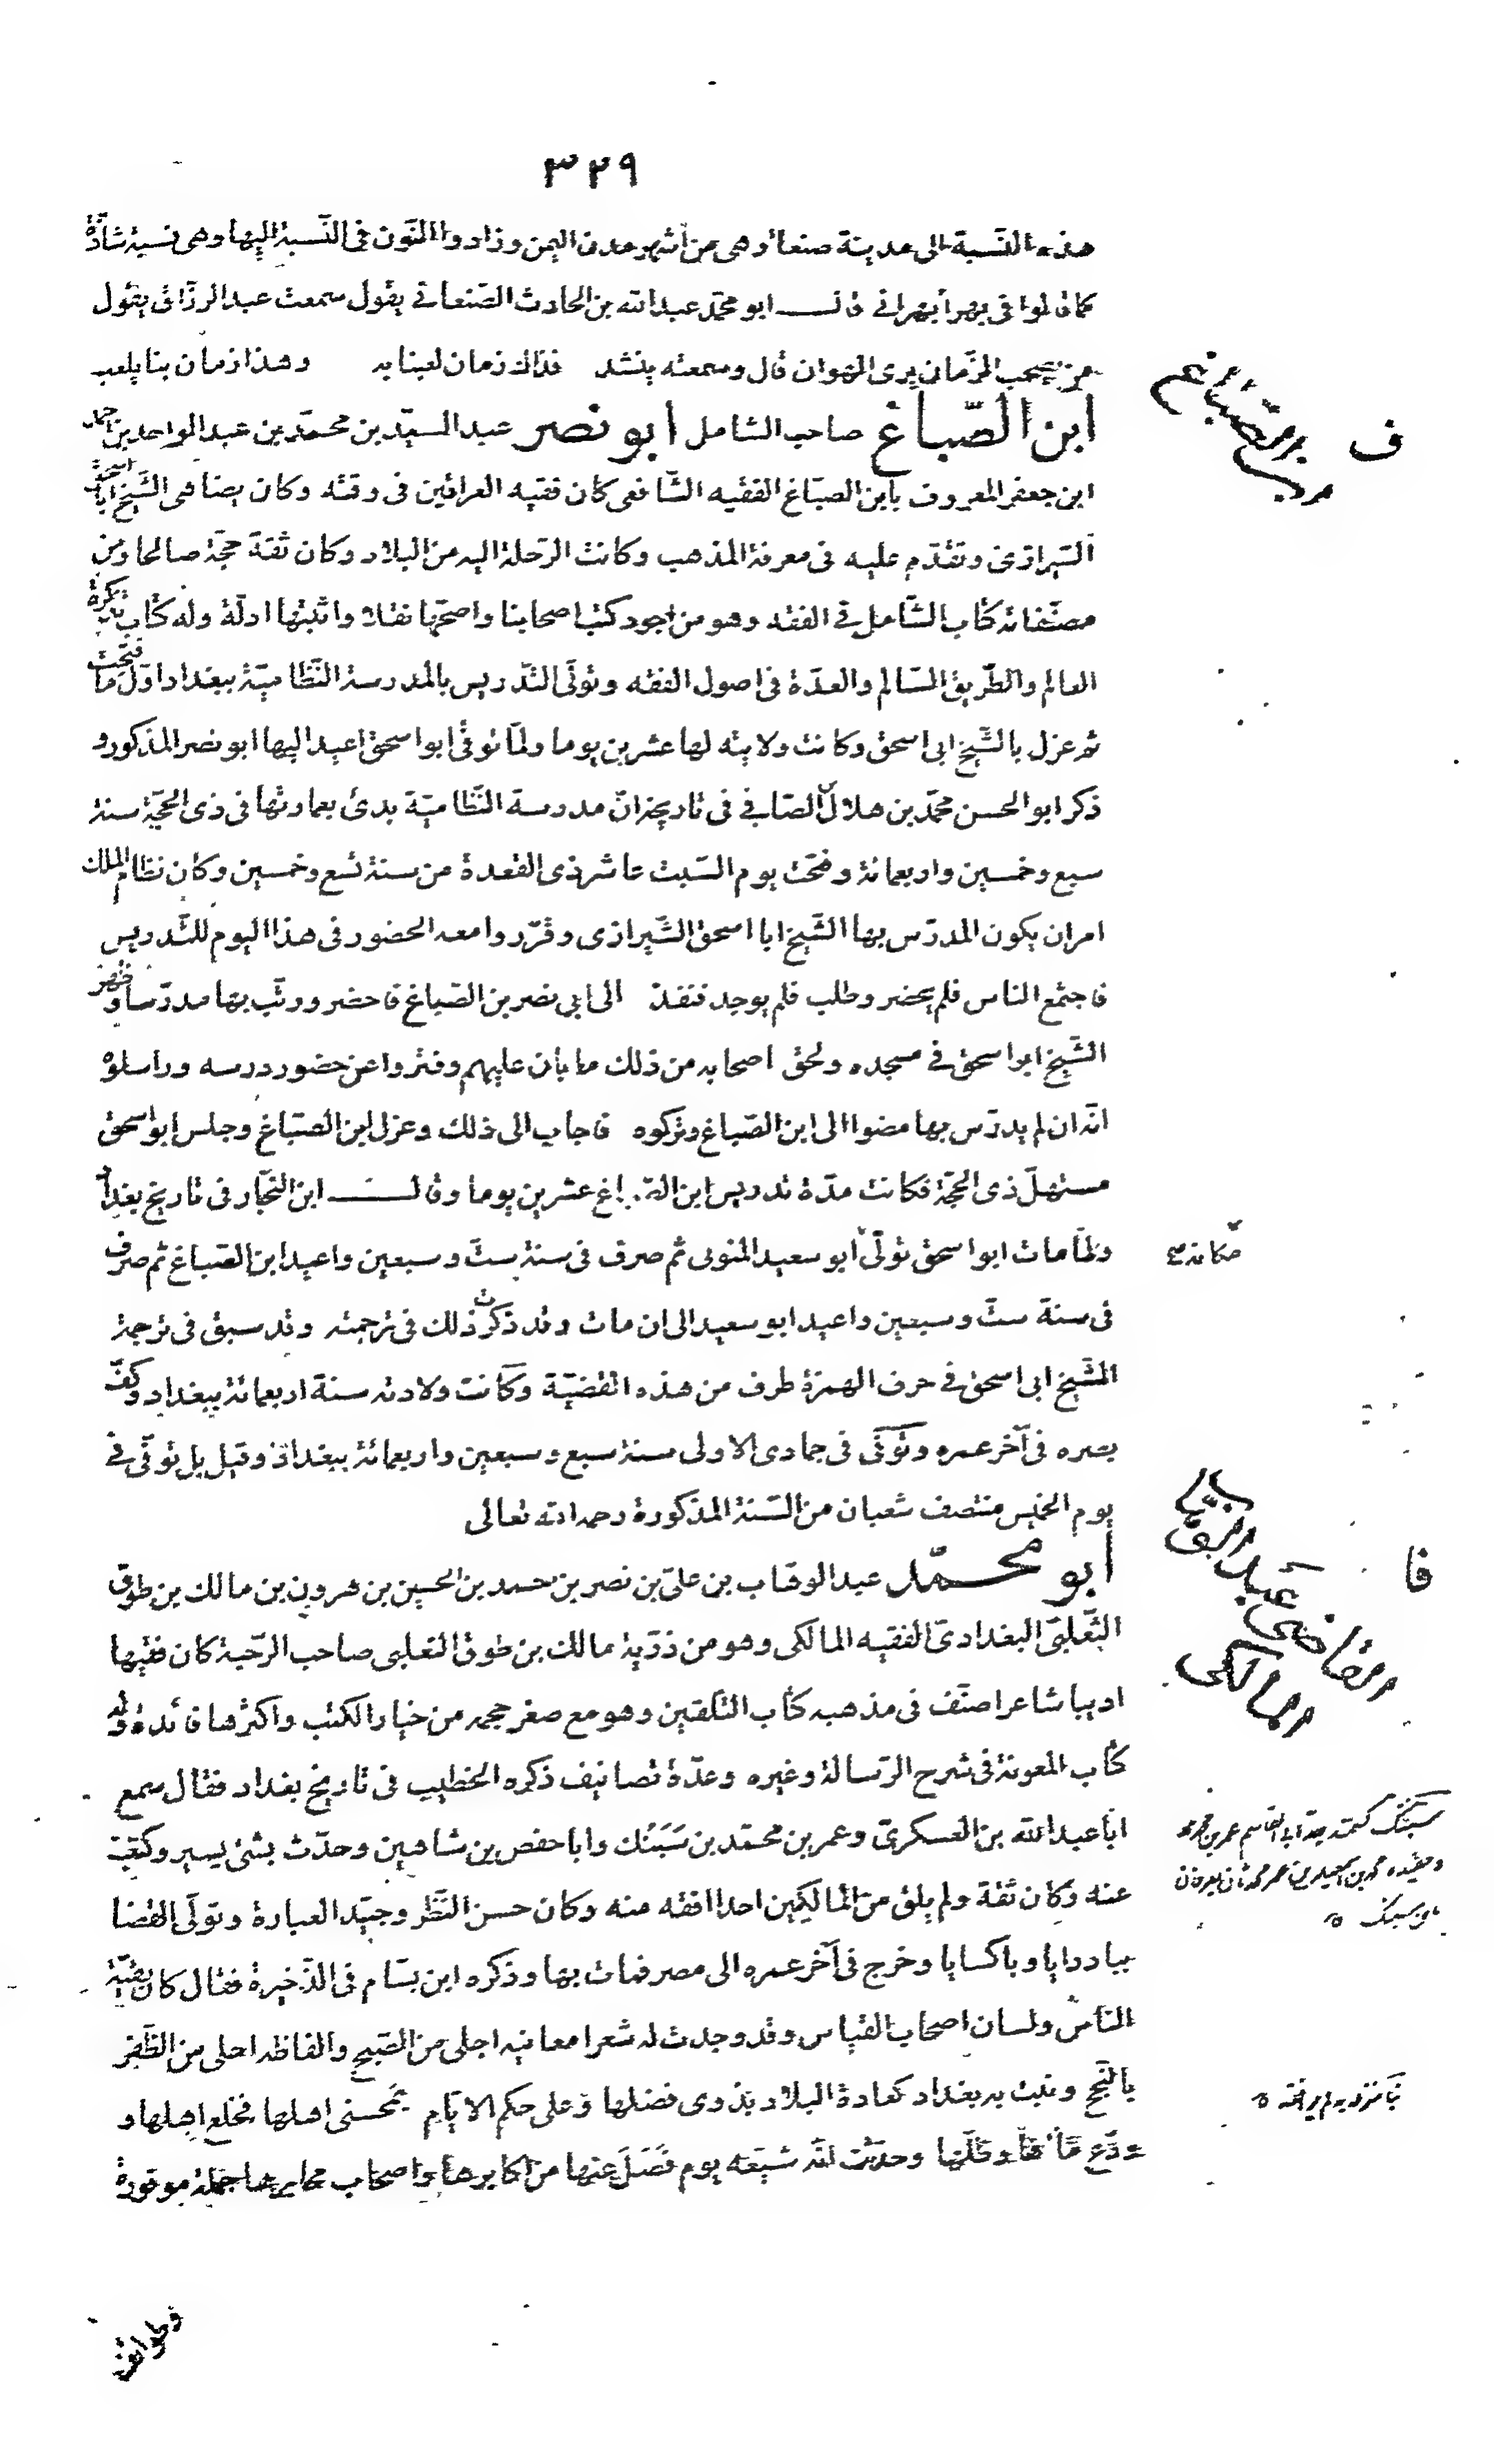 ٣٢٩
هذه النسبة الى مدينة صنعاء وهى من أشهر مدن اليمن وزادوا النون فى النسبة اليها وهى نسبة شاذّة
كما قالوا فى بهرا بهرانى قال ابو محمّد عبد الله بن الحارث الصنعانى يقول سمعت عبد الرزّاق يقول
من يصحب الزّمان يرى الهوان قال وسمعته ينشد فذاك زمان لعبنا به وهذا زمان بنا يلعب
ابن الصّباغ صاحب الشامل أبو نصر عبد السيّد بن محمّد بن عبد الواحد بن احمد
ابن جعفر المعروف بابن الصبّاغ الفقيه الشّافعى كان فقيه العراقين فى وقته وكان يضاهى الشّيخ ابا اسحق
الشيرازى وتقدّم عليه فى معرفة المذهب وكانت الرّحلة اليه من البلاد وكان ثقة حجّة صالحا ومن
مصنّفاته كتاب الشّامل فى الفقه وهو من اجود كتب اصحابنا واصحّها نقلا واثبتها ادلّة وله كتاب تذكرة
العالم والطّريق السّالم والعدّة فى اصول الفقه وتولّى التّدريس بالمدرسة النّظاميّة ببغداد اوّل ما فتحت
ثم عزل بالشّيخ ابى اسحق وكانت ولايته لها عشرين يوما ولمّا توفّى ابو اسحق اعيد اليها ابو نصر المذكور و
ذكر ابو الحسن محمّد بن هلال الصّابى فى تاريخه انّ مدرسة النّظاميّة بدئ بعمارتها فى ذى الحجّة سنة
سبع وخمسين واربعمائة وفتحت يوم السّبت عاشر ذى القعدة من سنة تسع وخمسين وكان نظام الملك
امر ان يكون المدرّس بها الشّيخ ابا اسحق الشّيرازى وقرّروا معه الحضور فى هذا اليوم للتّدريس
فاجتمع الناس فلم يحضر وطلب فلم يوجد فنفذ الى ابى نصر بن الصّباغ فاحضر ورتّب بها مدرّسا وظهر
الشّيخ ابو اسحق فى مسجده ولحق اصحابه من ذلك ما بان عليهم وفتروا عن حضور درسه وراسلوه
انّه ان لم يدرّس بها مضوا الى ابن الصّباغ وتركوه فاجاب الى ذلك وعزل ابن الصبّاغ وجلس ابو اسحق
مستهلّ ذى الحجّة فكانت مدّة تدريس ابن الصّباغ عشرين يوما وقال ابن النجّار فى تاريخ بغداد
ولمّا مات ابو اسحق تولّى أبو سعيد المتولى ثم صرف فى سنة ستّ وسبعين واعيد ابن الصّباغ ثم صرف
فى سنة ستّ وسبعين واعيد ابو سعيد الى ان مات وقد ذكرت ذلك فى ترجمته وقد سبق فى ترجمة
الشّيخ ابى اسحق فى حرف الهمزة طرف من هذه القضيّة وكانت ولادته سنة اربعمائة ببغداد وكفّ
بصره فى آخر عمره وتوفّى فى جمادى الاولى سنة سبع وسبعين واربعمائة ببغداد وقيل بل توفّى فى
يوم الخميس منتصف شعبان من السّنة المذكورة رحمه الله تعالى
أبو محمّد عبد الوهّاب بن علىّ بن نصر بن حمد بن الحسين بن هرون بن مالك بن طوق
الثّعلبىّ البغدادىّ الفقيه المالكى وهو من ذرّيّة مالك بن طوق التغلبى صاحب الرّحبة كان فقيها
اديبا شاعرا صنّف فى مذهبه كتاب التّلقين وهو مع صغر حجمه من خيار الكتب واكثرها فائدة وله
كتاب المعونة فى شرح الرّسالة وغيره وعدّة تصانيف ذكره الخطيب فى تاريخ بغداد فقال سمع
ابا عبد الله بن العسكرىّ وعمر بن محمّد بن سَبَنْك وابا حفص بن شاهين وحدّث بشئ يسير وكتبت
عنه وكان ثقة ولم يلق من المالكيين احدا افقه منه وكان حسن النّظر وجيّد العبارة وتولّى القضا
ببادرايا وباكسايا وخرج فى آخر عمره الى مصر فمات بها وذكره ابن بسّام فى الذّخيرة فقال كان بقيّة
النّاس ولسان اصحاب القياس وقد وجدت له شعرا معانيه اجلى من الصّبح والفاظه احلى من الظّفر
بالنّجح ونبت به بغداد كعادة البلاد بذوى فضلها وعلى حكم الايّام بمحسنى اهلها فخلع اهلها و
ودّع ماءها وظلّها وحدّثت انّه شيّعه يوم فَصَل عنها من اكابرها واصحاب محابرها جملة موفورة
ف
ابن الصّبّاغ
فا
القاضى عبد الوهّاب
المالكى